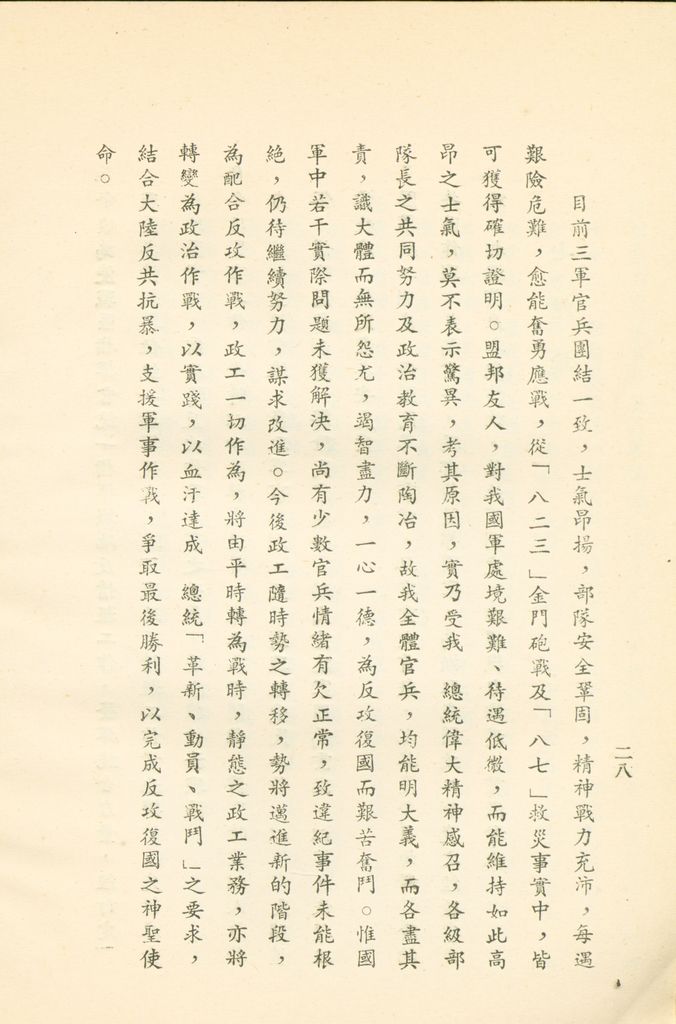 二八
目前三軍官兵團結一致，士氣昂揚，部隊安全鞏固，精神戰力充沛，每遇
艱險危難，愈能奮勇應戰，從「八二三」金門砲戰及「八七」救災事實中，皆
可獲得確切證明。盟邦友人，對我國軍處境艱難、待遇低微，而能維持如此高
昂之士氣，莫不表示驚異，考其原因，實乃受我　總統偉大精神感召，各級部
隊長之共同努力及政治教育不斷陶冶，故我全體官兵，均能明大義，而各盡其
責，識大體而無所怨尤，竭智盡力，一心一德，為反攻復國而艱苦奮鬥。惟國
軍中若干實際問題未獲解決，尚有少數官兵情緒有欠正常，致違紀事件未能根
絕，仍待繼續努力，謀求改進。今後政工隨時勢之轉移，勢將邁進新的階段，
為配合反攻作戰，政工一切作為，將由平時轉為戰時，靜態之政工業務，亦將
轉變為政治作戰，以實踐，以血汗達成　總統「革新、動員、戰鬥」之要求，
結合大陸反共抗暴，支援軍事作戰，爭取最後勝利，以完成反攻復國之神聖使
命。